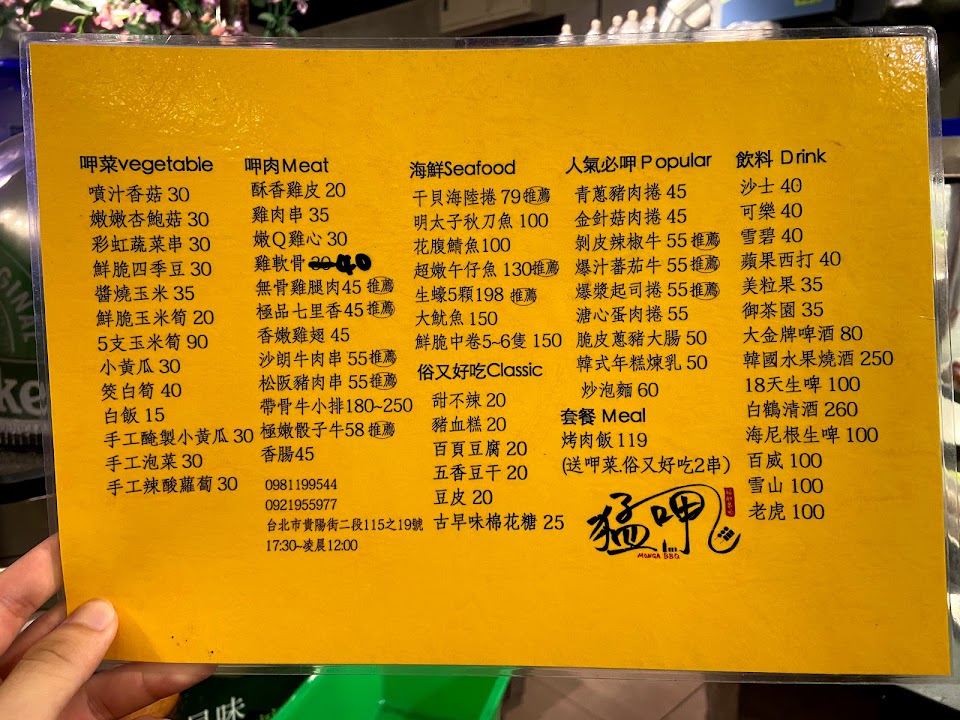 呷菜vegetable
噴汁香菇 30
嫩嫩杏鮑菇 30
彩虹蔬菜串 30
鮮脆四季豆 30
醬燒玉米 35
鮮脆玉米筍 20
5支玉米筍 90
小黃瓜 30
筊白筍 40
白飯 15
手工醃製小黃瓜 30
手工泡菜 30
手工辣酸蘿蔔 30
呷肉Meat
酥香雞皮 20
雞肉串 35
嫩Q雞心 30
雞軟骨 30 40
無骨雞腿肉45 推薦
極品七里香45 推薦
香嫩雞翅 45
沙朗牛肉串 55 推薦
松阪豬肉串 55 推薦
帶骨牛小排180~250
極嫩骰子牛58 推薦
香腸45
0981199544
0921955977
台北市貴陽街二段115之19號
17:30~凌晨12:00
海鮮Seafood
干貝海陸捲 79 推薦
明太子秋刀魚 100
花腹鯖魚100
超嫩午仔魚 130 推薦
生蠔5顆198 推薦
大魷魚 150
鮮脆中卷5~6隻 150
俗又好吃Classic
甜不辣 20
豬血糕 20
百頁豆腐 20
五香豆干 20
豆皮 20
古早味棉花糖 25
人氣必呷Popular
青蔥豬肉捲 45
金針菇肉捲 45
剝皮辣椒牛 55 推薦
爆汁蕃茄牛 55 推薦
爆漿起司捲 55 推薦
溏心蛋肉捲 55
脆皮蔥豬大腸 50
韓式年糕煉乳 50
炒泡麵 60
套餐 Meal
烤肉飯 119
(送呷菜.俗又好吃2串)
猛呷
MONGA BBQ
飲料 Drink
沙士 40
可樂 40
雪碧 40
蘋果西打 40
美粒果 35
御茶園 35
大金牌啤酒 80
韓國水果燒酒 250
18天生啤 100
白鶴清酒 260
海尼根生啤 100
百威 100
雪山 100
老虎 100